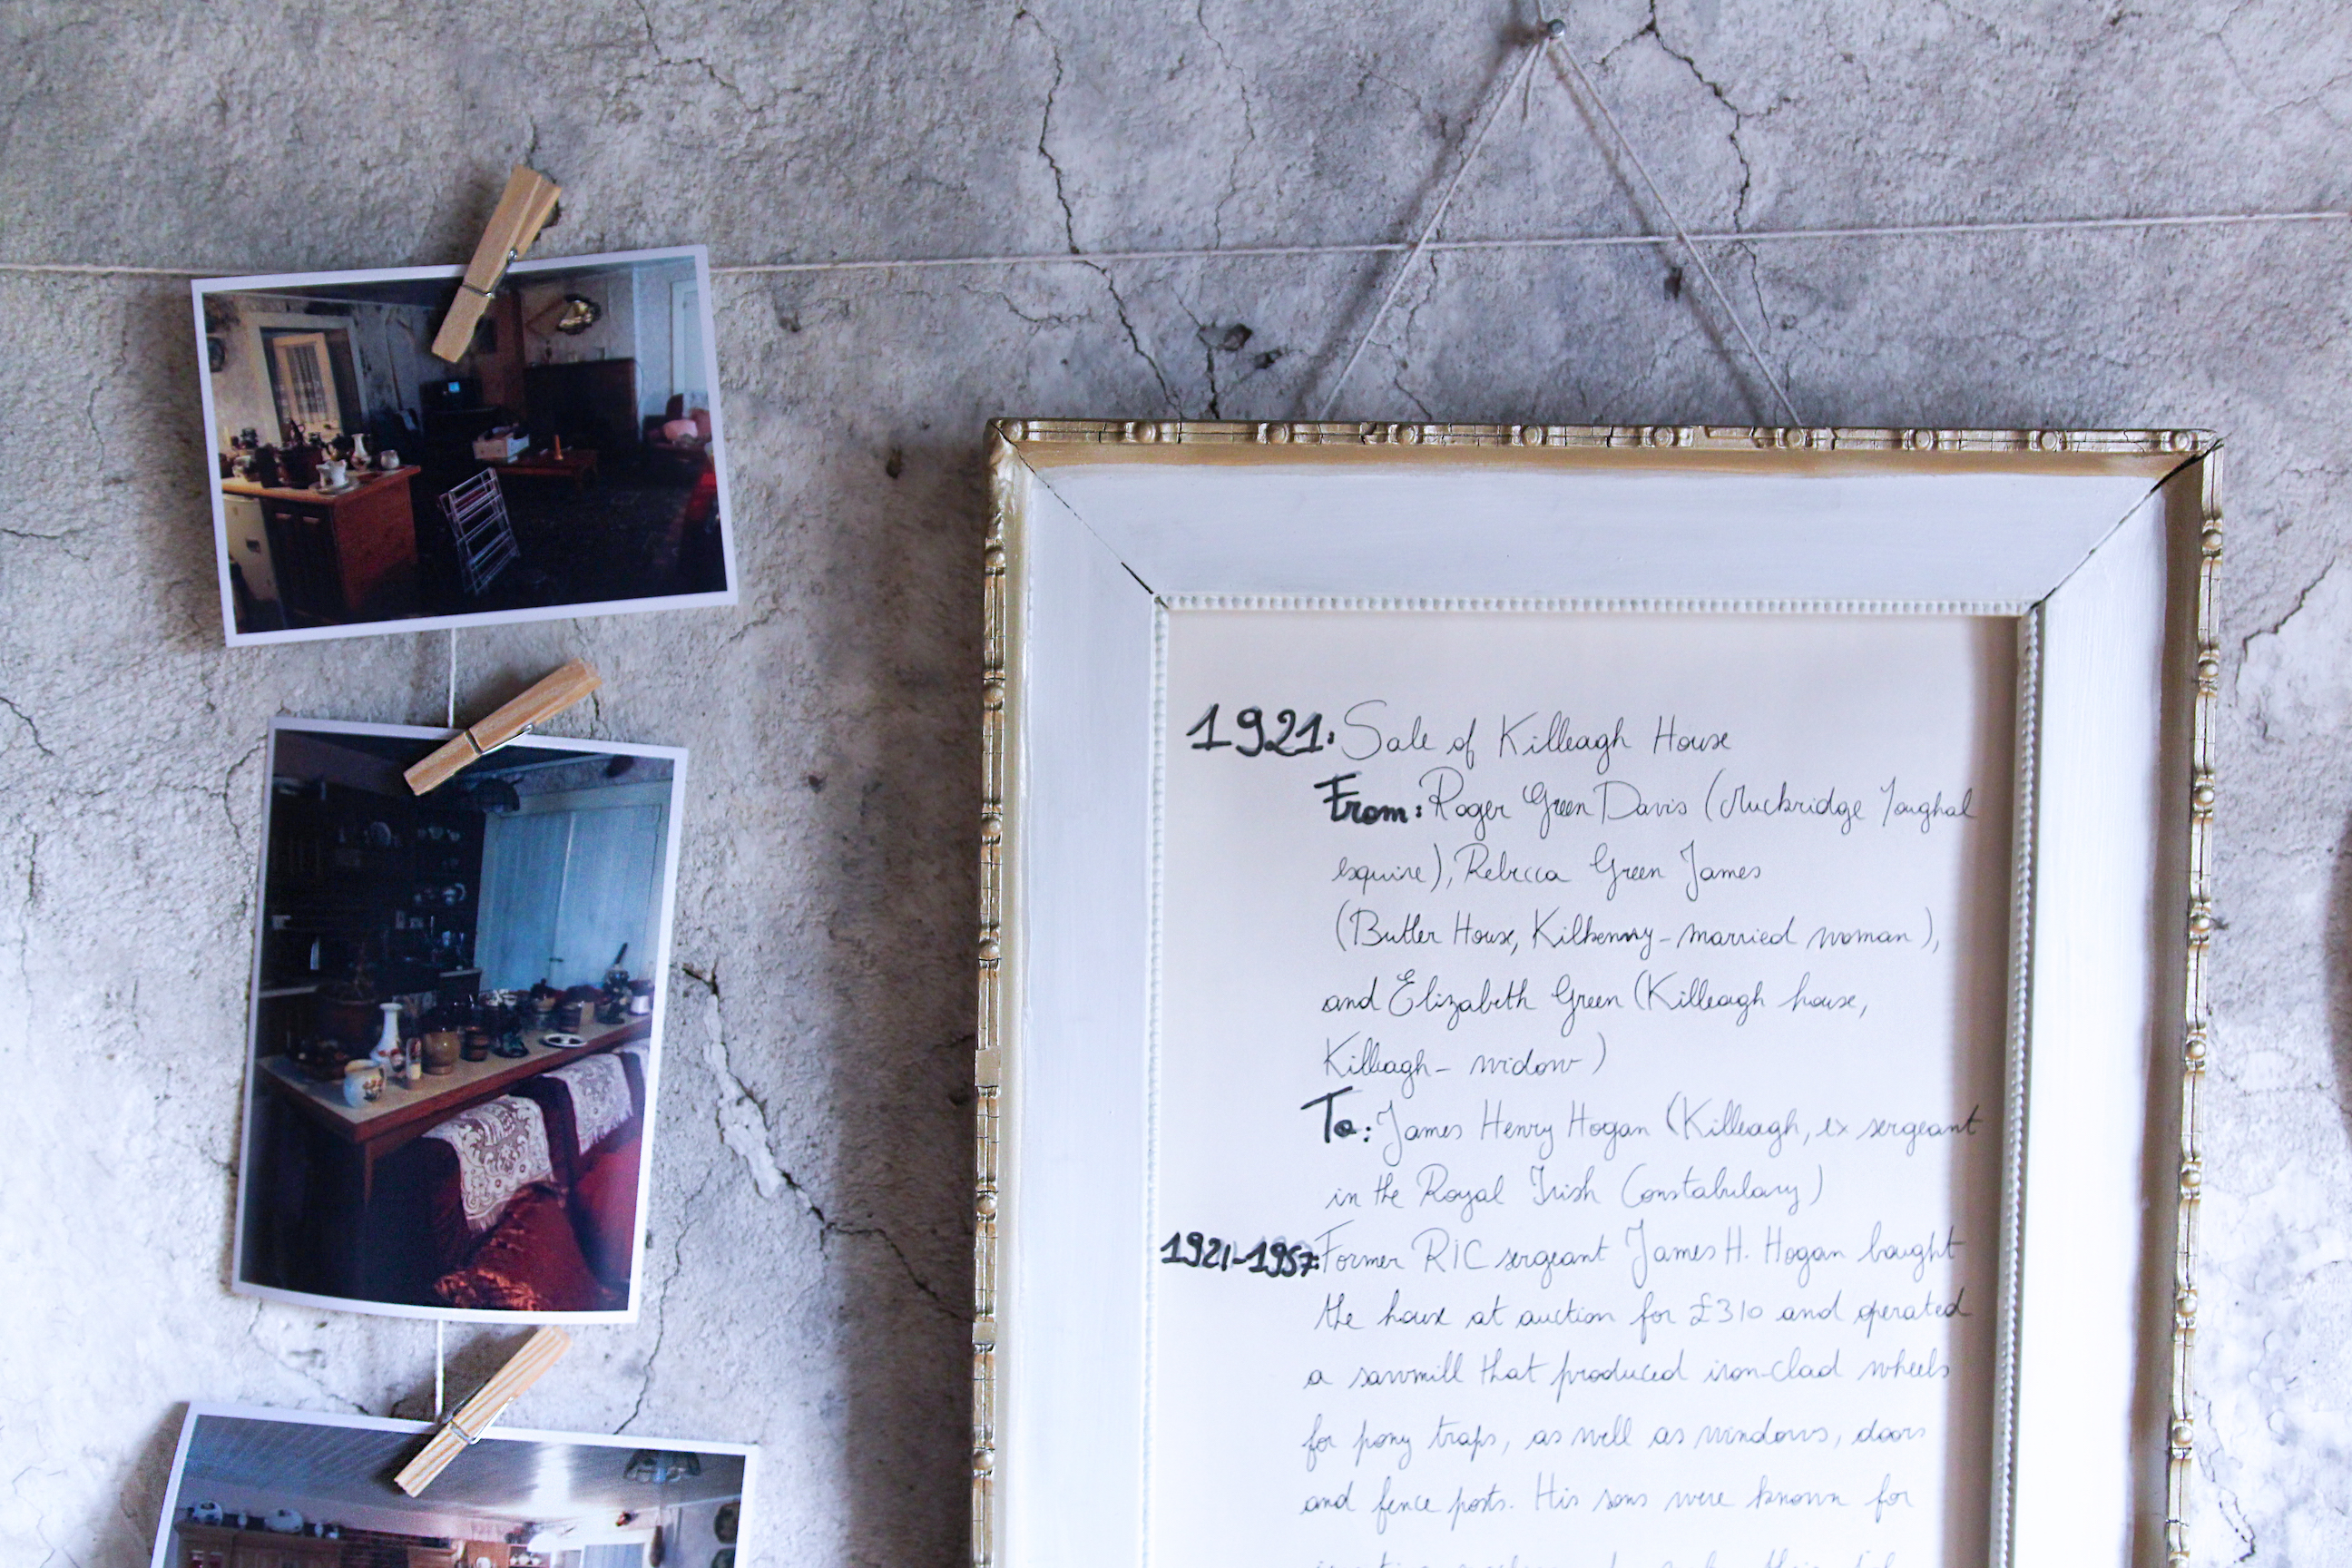 1921: Sale of Killeagh House
From: Roger Green Davis (Muckridge Youghal
esquire), Rebecca Green James
(Butler House, Kilkenny - married woman),
and Elizabeth Green (Killeagh house,
Killeagh - widow)
To: James Henry Hogan (Killeagh, ex sergeant
in the Royal Irish Constabulary)
1921-1957: Former RIC sergeant James H. Hogan bought
the house at auction for £310 and operated
a sawmill that produced iron-clad wheels
for pony traps, as well as windows, doors
and fence posts. His sons were known for